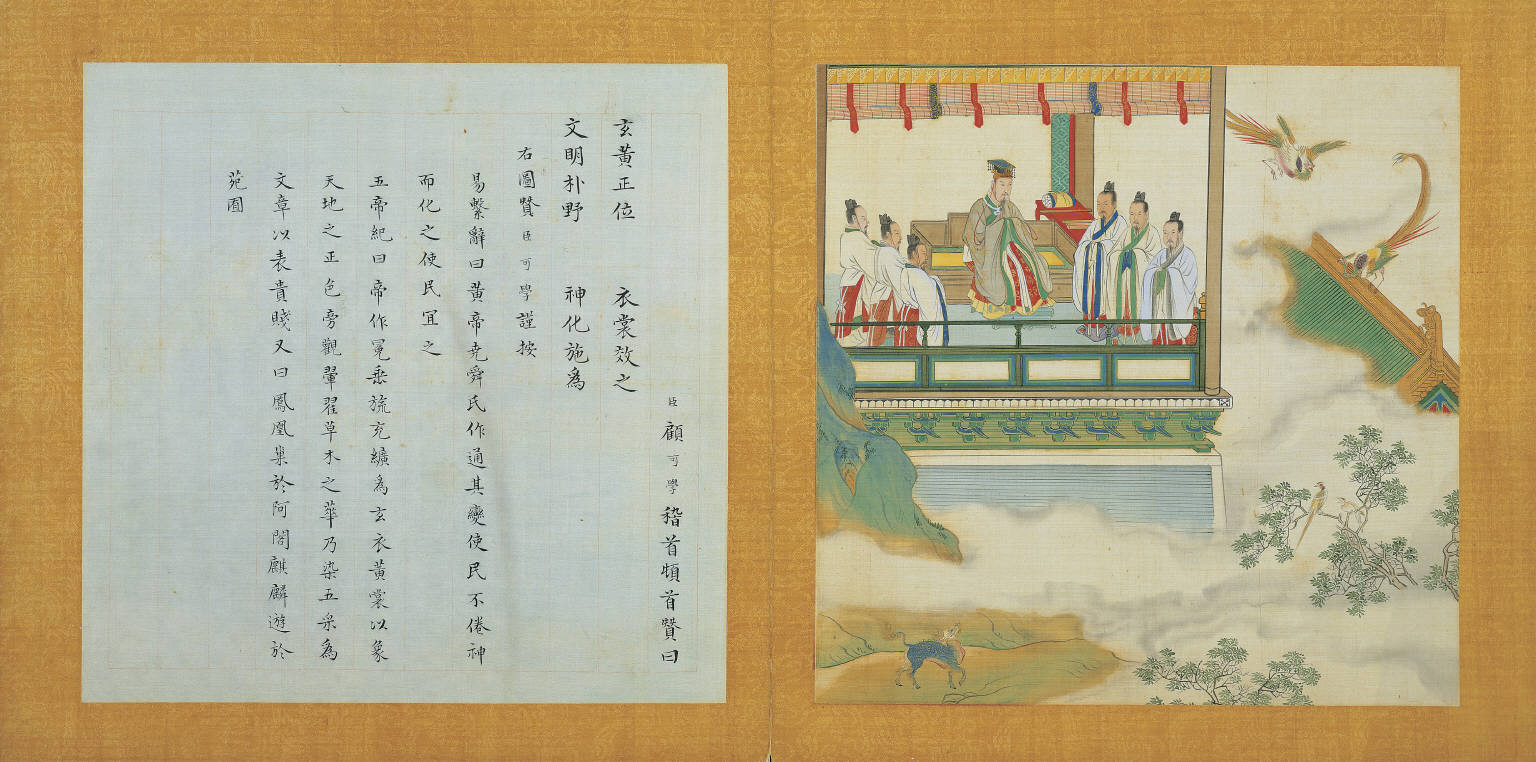 臣顧可學稽首頓首贊曰
玄黃正位 衣裳效之
文明朴野 神化施為
右圖贊臣可學謹按
易繫辭曰黃帝堯舜氏作通其變使民不倦神
而化之使民宜之
五帝紀曰帝作冕垂旒充纊為玄衣黃裳以象
天地之正色旁觀翬翟草木之華乃染五采為
文章以表貴賤又曰鳳凰巢於阿閣麒麟遊於
苑囿